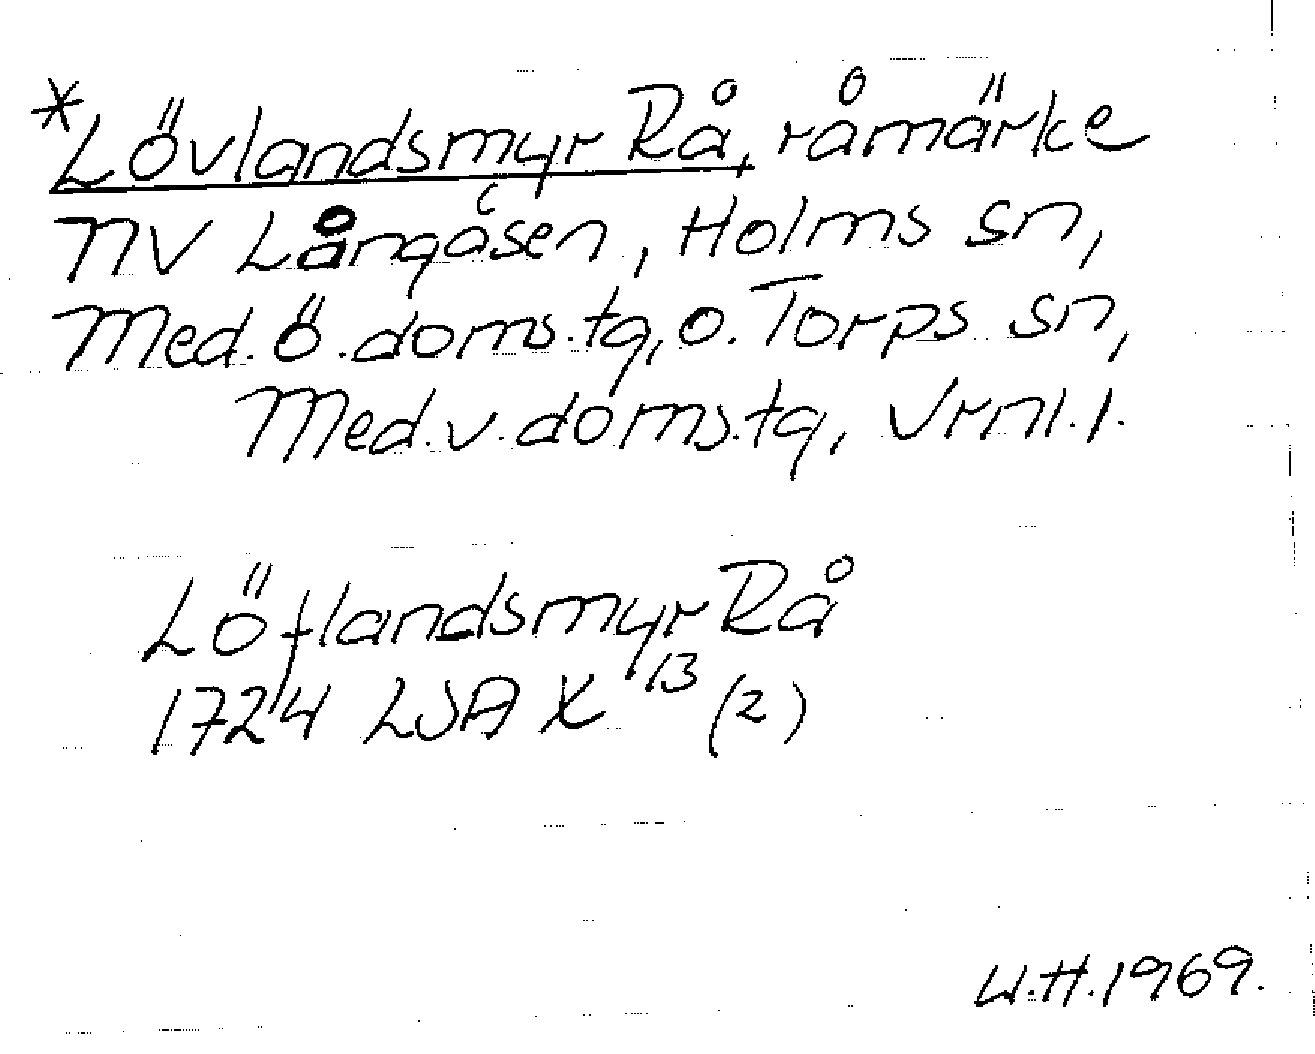 *Lövlandsmyr Rå, råmärke
NV Långåsen, Holms sn,
Med. ö. doms.tg, o. Torps sn,
Med. v. doms.tg, Vrnl. l.
Löflandsmyr Rå
1724 LSA X 13 (2)
U.H. 1969.